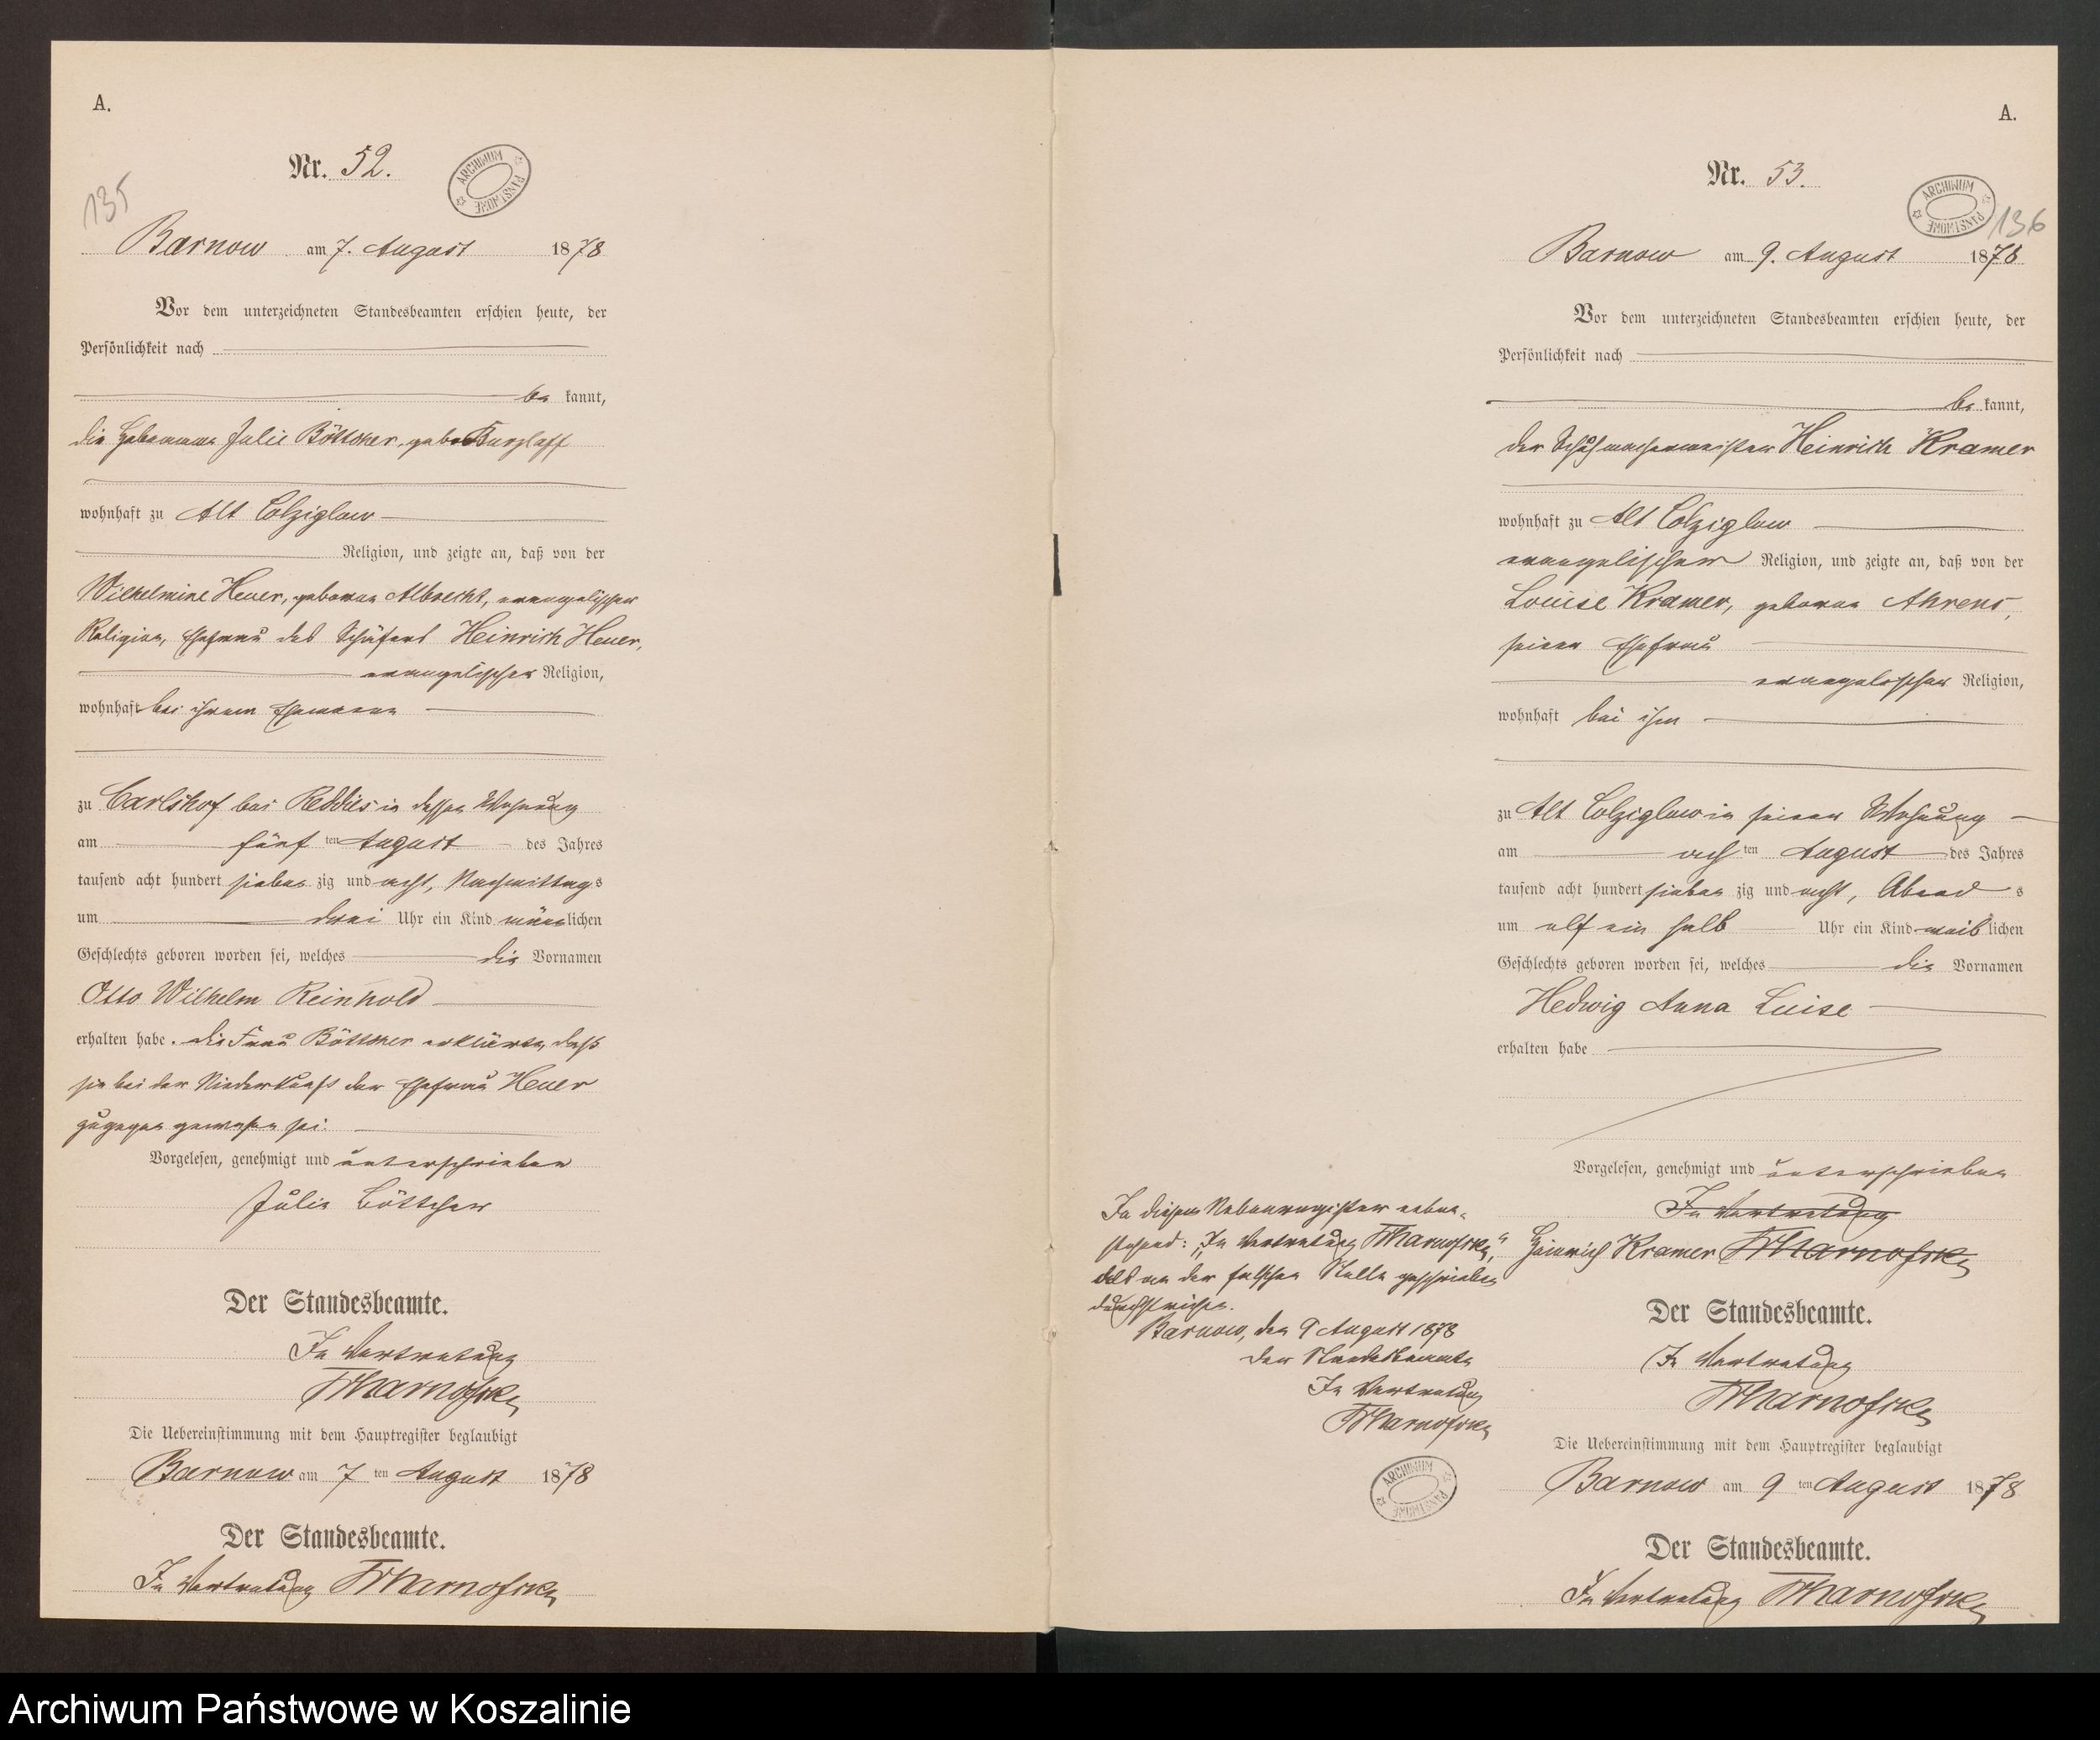 A.
Nr. 52.
ARCHIWUM PAŃSTWOWE
135
Barnow am 7. August 1878
Vor dem unterzeichneten Standesbeamten erschien heute, der
Persönlichkeit nach
be kannt,
die Hebamme Julie Böttcher, gebo Burzlaff
wohnhaft zu Alt Colziglow
Religion, und zeigte an, daß von der
Wilhelmine Heuer, geborne Albrecht, evangelischer
Religion, Ehefrau des Schäfers Heinrich Heuer,
evangelischer Religion,
wohnhaft bei ihrem Ehemanne
zu Carlshof bei Reddies in dessen Wohnung
am fünf ten August des Jahres
tausend acht hundert sieben zig und acht, Nachmittag s
um drei Uhr ein Kind männ lichen
Geschlechts geboren worden sei, welches die Vornamen
Otto Wilhelm Reinhold
erhalten habe. die Frau Böttcher erklärte, daß
sie bei der Niederkunft der Ehefrau Heuer
zugegen gewesen sei.
Vorgelesen, genehmigt und unterschrieben
Julie Böttcher
Der Standesbeamte.
In Vertretung
Die Uebereinstimmung mit dem Hauptregister beglaubigt
Barnow am 7 ten August 1878
Der Standesbeamte.
In Vertretung
A.
Nr. 53.
ARCHIWUM PAŃSTWOWE
136
Barnow am 9. August 1878
Vor dem unterzeichneten Standesbeamten erschien heute, der
Persönlichkeit nach
be kannt,
der Schuhmachermeister Heinrich Kramer
wohnhaft zu Alt Colziglow
evangelischer Religion, und zeigte an, daß von der
Louise Kramer, geborne Ahrens,
seiner Ehefrau
evangelischer Religion,
wohnhaft bei ihm
zu Alt Colziglow in seiner Wohnung
am ach ten August des Jahres
tausend acht hundert sieben zig und acht, Abend s
um elf ein halb Uhr ein Kind weib lichen
Geschlechts geboren worden sei, welches die Vornamen
Hedwig Anna Luise
erhalten habe
Vorgelesen, genehmigt und unterschrieben
In Vertretung
Heinrich Kramer
Der Standesbeamte.
In Vertretung
Die Uebereinstimmung mit dem Hauptregister beglaubigt
Barnow am 9 ten August 1878
Der Standesbeamte.
In Vertretung
In diesem Nebenregister neben-
stehend: "In Vertretung
als an der falschen Stelle geschrieben
durchstrichen.
Barnow, den 9 August 1878
Der Standesbeamte
In Vertretung
ARCHIWUM PAŃSTWOWE
Archiwum Państwowe w Koszalinie